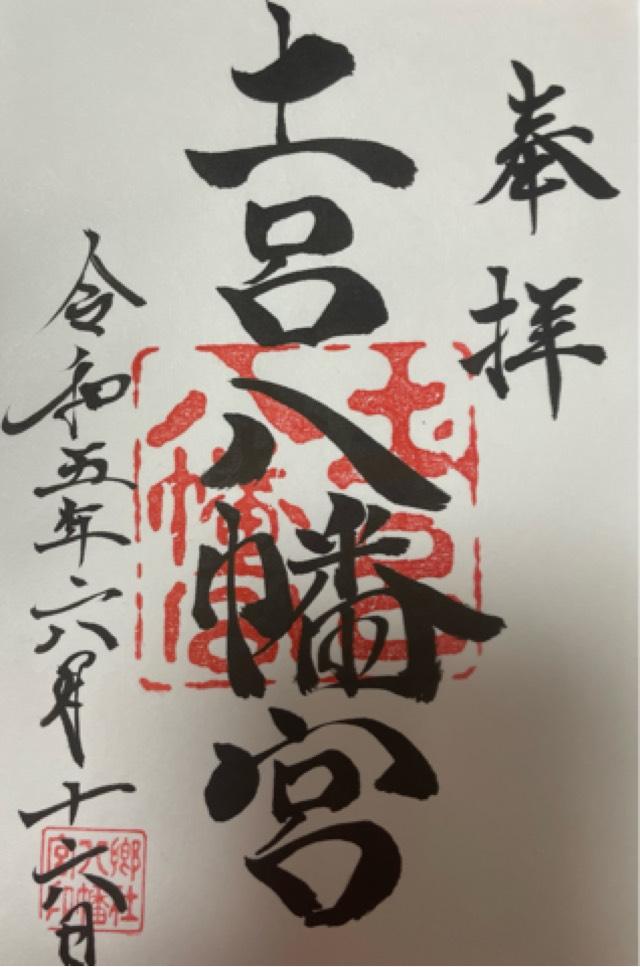 奉拝
土呂八幡宮
土呂
八幡宮
令和五年六月十六日
郷社
八幡
宮印